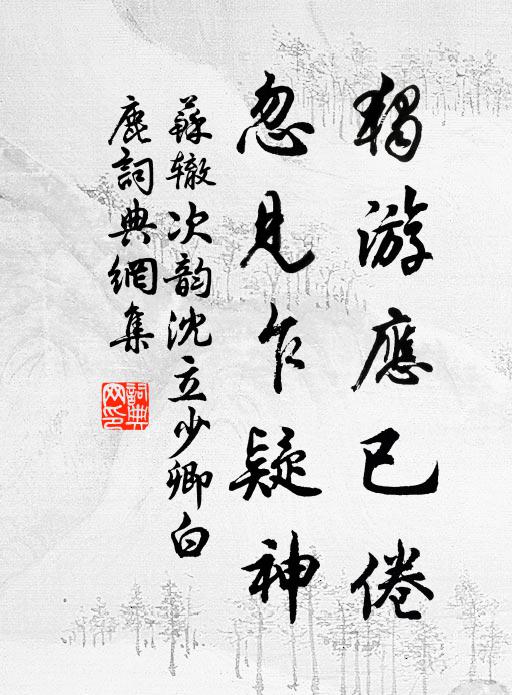 獨游應已倦
忽見乍疑神
蘇辙次韵沈立少卿白
鹿詞典網集
詞典网印